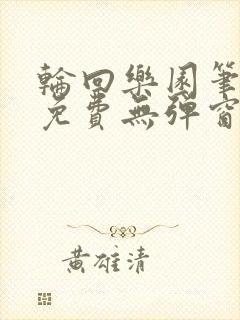 輪回樂園筆
免費無彈窗
黃雄清